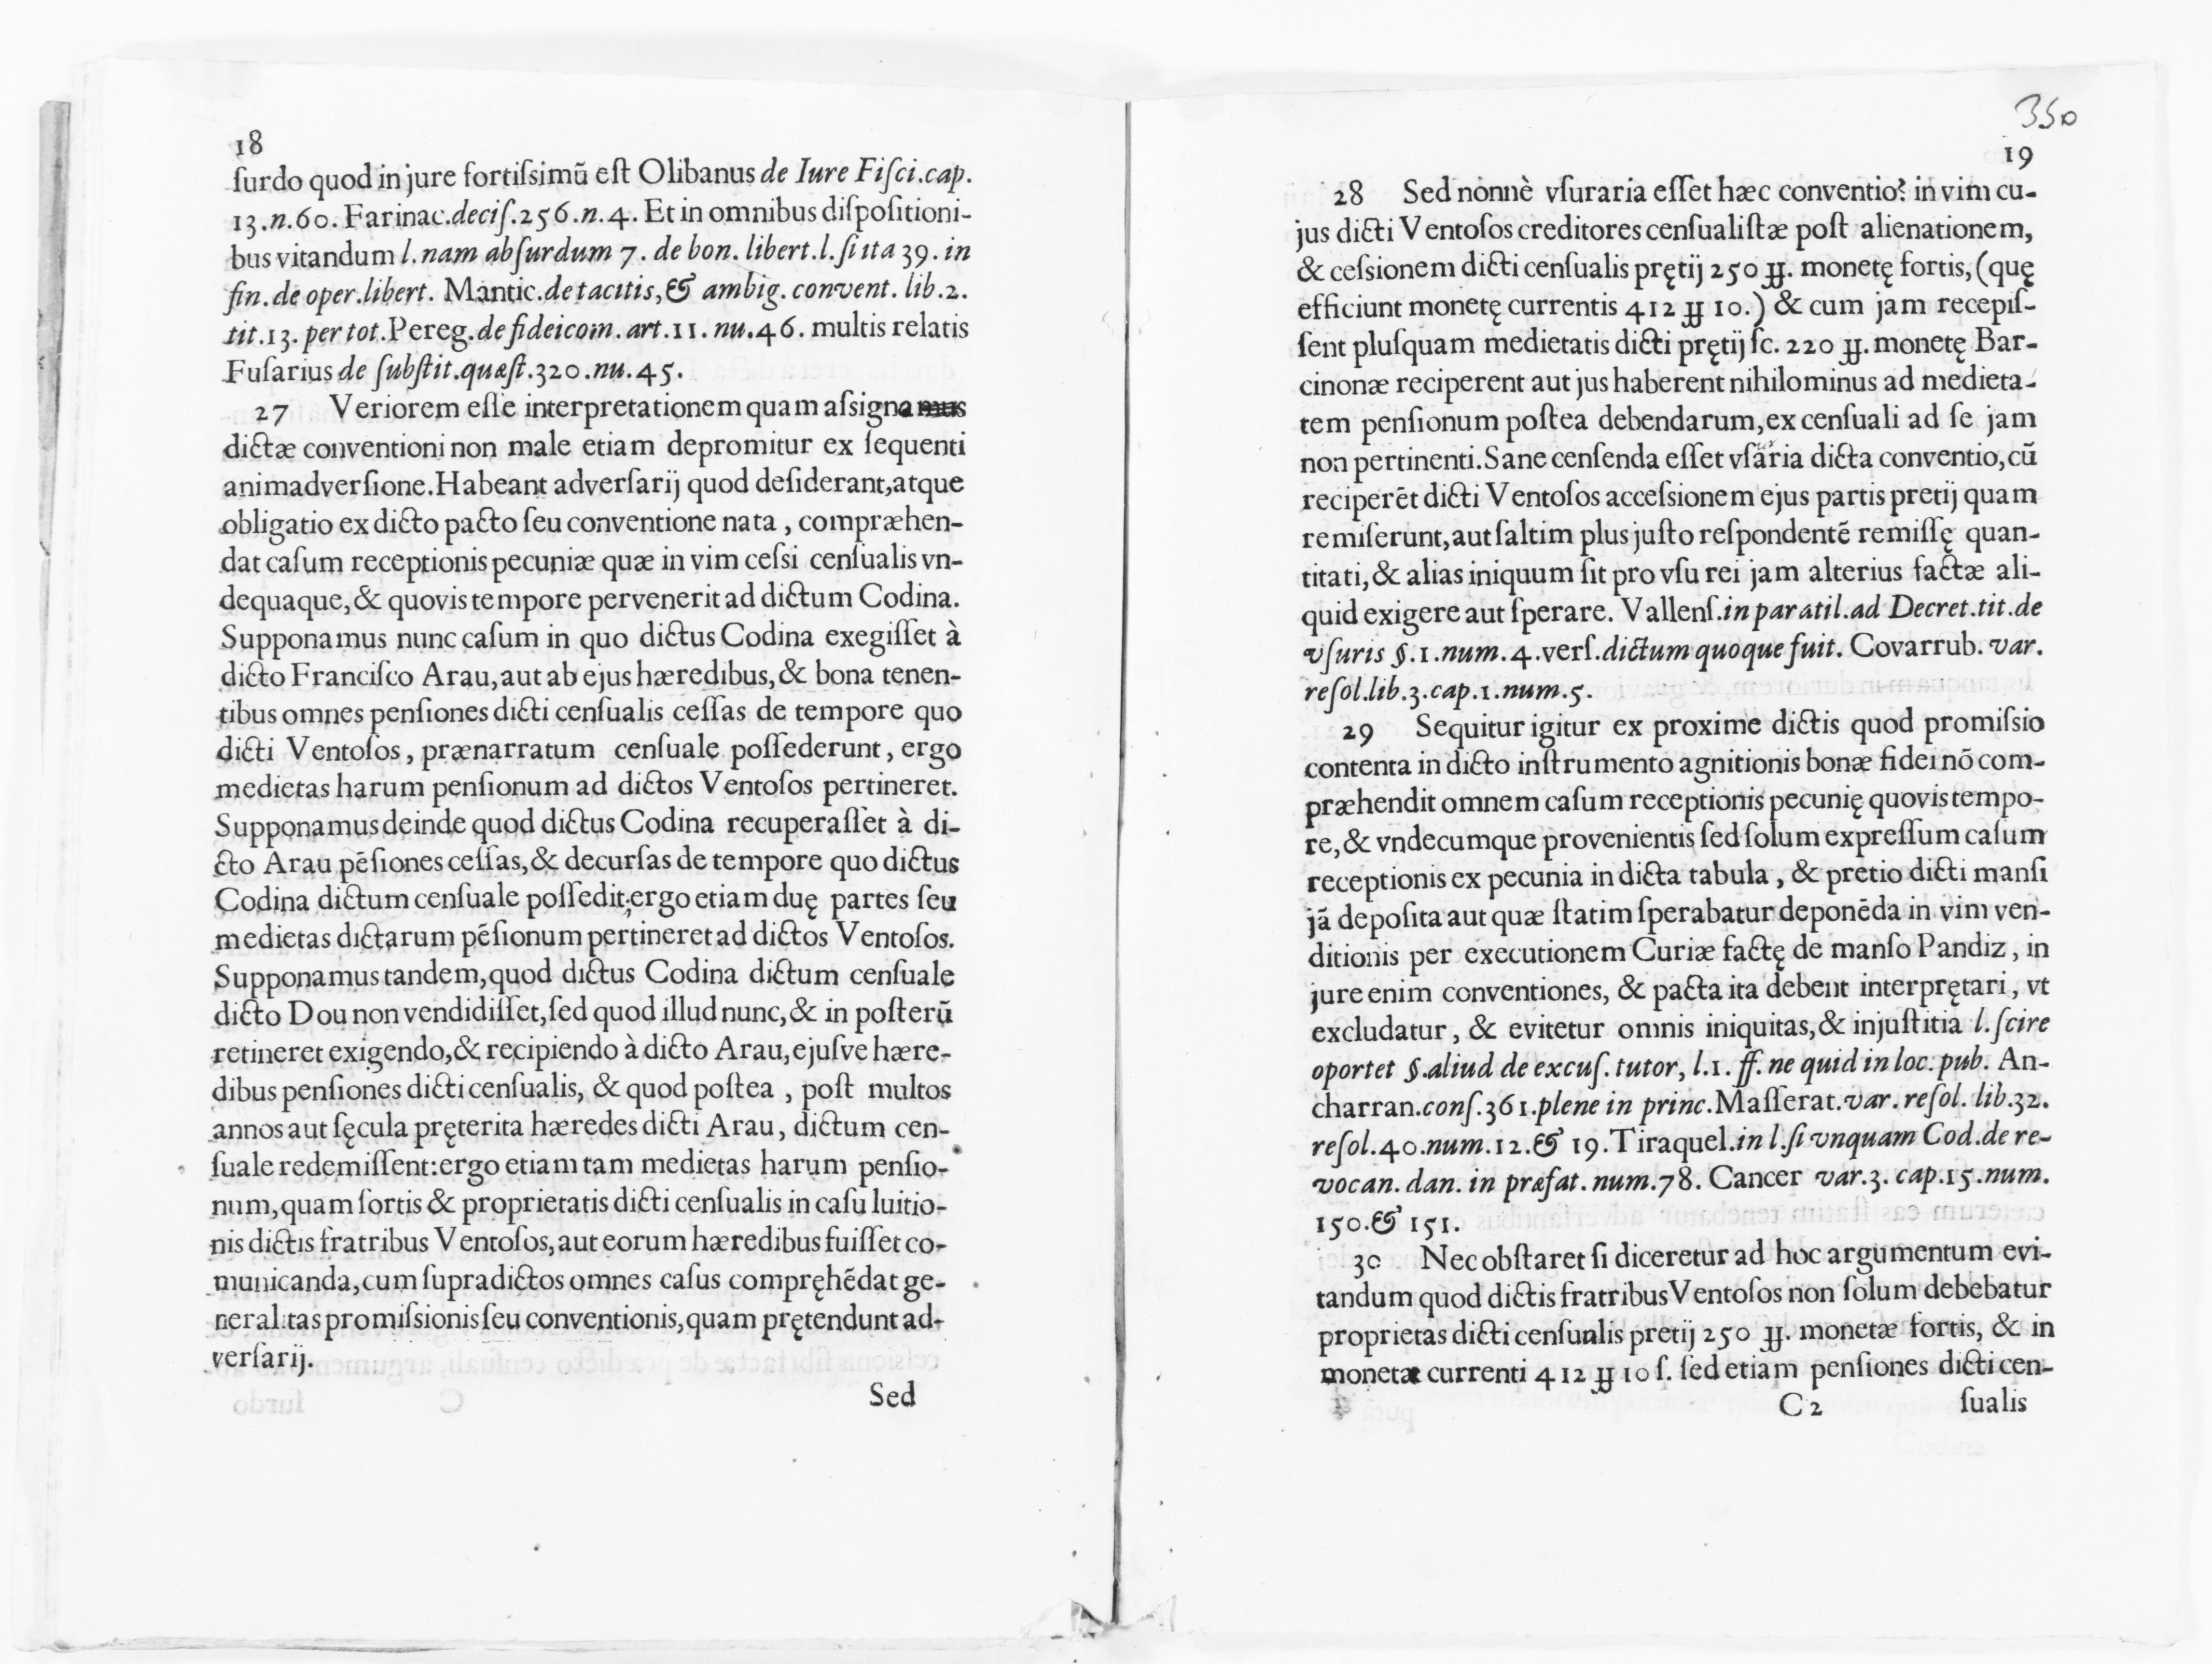 18
ſurdo quod in jure fortiſsimũ eſt Olibanus de Iure Fiſci.cap.
13.n.60. Farinac.deciſ.256.n.4. Et in omnibus diſpoſitioni-
bus vitandum l.nam abſurdum 7. de bon. libert.l.ſi ita 39. in
fin. de oper.libert. Mantic.de tacitis,& ambig. convent. lib.2.
tit.13. per tot.Pereg.de fideicom. art.11. nu.46. multis relatis
Fuſarius de ſubſtit.quæſt.320.nu.45.
27 Veriorem eſſe interpretationem quam aſsignamus
dictæ conventioni non male etiam depromitur ex ſequenti
animadverſione.Habeant adverſarij quod deſiderant,atque
obligatio ex dicto pacto ſeu conventione nata , compræhen-
dat caſum receptionis pecuniæ quæ in vim ceſsi cenſualis vn-
dequaque,& quovis tempore pervenerit ad dictum Codina.
Supponamus nunc caſum in quo dictus Codina exegiſſet à
dicto Franciſco Arau,aut ab ejus hæredibus,& bona tenen-
tibus omnes penſiones dicti cenſualis ceſſas de tempore quo
dicti Ventoſos, prænarratum cenſuale poſſederunt, ergo
medietas harum penſionum ad dictos Ventoſos pertineret.
Supponamus deinde quod dictus Codina recuperaſſet à di-
cto Arau pẽſiones ceſſas,& decurſas de tempore quo dictus
Codina dictum cenſuale poſſedit;ergo etiam duę partes ſeu
medietas dictarum pẽſionum pertineret ad dictos Ventoſos.
Supponamus tandem,quod dictus Codina dictum cenſuale
dicto Dou non vendidiſſet,ſed quod illud nunc,& in poſterũ
retineret exigendo,& recipiendo à dicto Arau,ejuſve hære-
dibus penſiones dicti cenſualis, & quod poſtea , poſt multos
annos aut ſęcula pręterita hæredes dicti Arau, dictum cen-
ſuale redemiſſent:ergo etiam tam medietas harum penſio-
num,quam ſortis & proprietatis dicti cenſualis in caſu luitio-
nis dictis fratribus Ventoſos,aut eorum hæredibus fuiſſet co-
municanda,cum ſupradictos omnes caſus compręhẽdat ge-
neralitas promiſsionis ſeu conventionis,quam prętendunt ad-
verſarij.
Sed
350
19
28 Sed nonnè vſuraria eſſet hæc conventio? in vim cu-
jus dicti Ventoſos creditores cenſualiſtæ poſt alienationem,
& ceſsionem dicti cenſualis prętij 250 ℔. monetę fortis,(quę
efficiunt monetę currentis 412 ℔ 10.) & cum jam recepiſ-
ſent pluſquam medietatis dicti prętij ſc. 220 ℔. monetę Bar-
cinonæ reciperent aut jus haberent nihilominus ad medieta-
tem penſionum poſtea debendarum,ex cenſuali ad ſe jam
non pertinenti.Sane cenſenda eſſet vſãria dicta conventio,cũ
reciperẽt dicti Ventoſos acceſsionem ejus partis pretij quam
remiſerunt,aut ſaltim plus juſto reſpondentẽ remiſſę quan-
titati,& alias iniquum ſit pro vſu rei jam alterius factæ ali-
quid exigere aut ſperare. Vallenſ.in paratil.ad Decret.tit.de
vſuris §.1.num.4.verſ.dictum quoque fuit. Covarrub. var.
reſol.lib.3.cap.1.num.5.
29 Sequitur igitur ex proxime dictis quod promiſsio
contenta in dicto inſtrumento agnitionis bonæ fidei nõ com-
præhendit omnem caſum receptionis pecunię quovis tempo-
re,& vndecumque provenientis ſed ſolum expreſſum caſum
receptionis ex pecunia in dicta tabula , & pretio dicti manſi
jã depoſita aut quæ ſtatim ſperabatur deponẽda in vim ven-
ditionis per executionem Curiæ factę de manſo Pandiz , in
jure enim conventiones, & pacta ita debent interprętari , vt
excludatur , & evitetur omnis iniquitas,& injuſtitia l.ſcire
oportet §.aliud de excuſ. tutor, l.1. ff. ne quid in loc. pub. An-
charran.conſ.361.plene in princ.Maſſerat.var. reſol. lib.32.
reſol.40.num.12.& 19.Tiraquel.in l.ſi vnquam Cod.de re-
vocan. dan. in præfat. num.78. Cancer var.3. cap.15.num.
150.& 151.
30 Nec obſtaret ſi diceretur ad hoc argumentum evi-
tandum quod dictis fratribus Ventoſos non ſolum debebatur
proprietas dicti cenſualis pretij 250 ℔. monetæ fortis, & in
monetæ currenti 412 ℔ 10 ſ. ſed etiam penſiones dicti cen-
C 2 ſualis